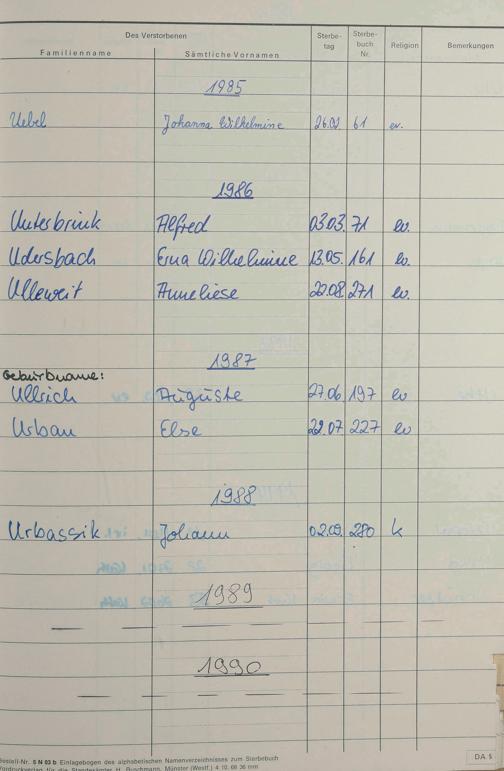 Des Verstorbenen
Familienname Sämtliche Vornamen Sterbe-tag Sterbe-buch Nr. Religion Bemerkungen
1985
Uebel Johanna Wilhelmine 26.02. 61 ev.
1986
Unterbrink Alfred 03.03. 71 ev.
Udersbach Erna Wilhelmine 13.05. 161 ev.
Ulleweit Anneliese 22.08. 271 ev.
1987
Geburtsname:
Ullrich Auguste 27.06 197 ev
Urban Else 22.07 227 ev
1988
Urbassik Johann 02.09. 280 k
1989
1990
Bestell-Nr. S N 03 b Einlagebogen des alphabetischen Namenverzeichnisses zum Sterbebuch
Vordruckverlag für die Standesämter H. Buschmann, Münster (Westf.) 4 10. 66 36 mm
DA 5